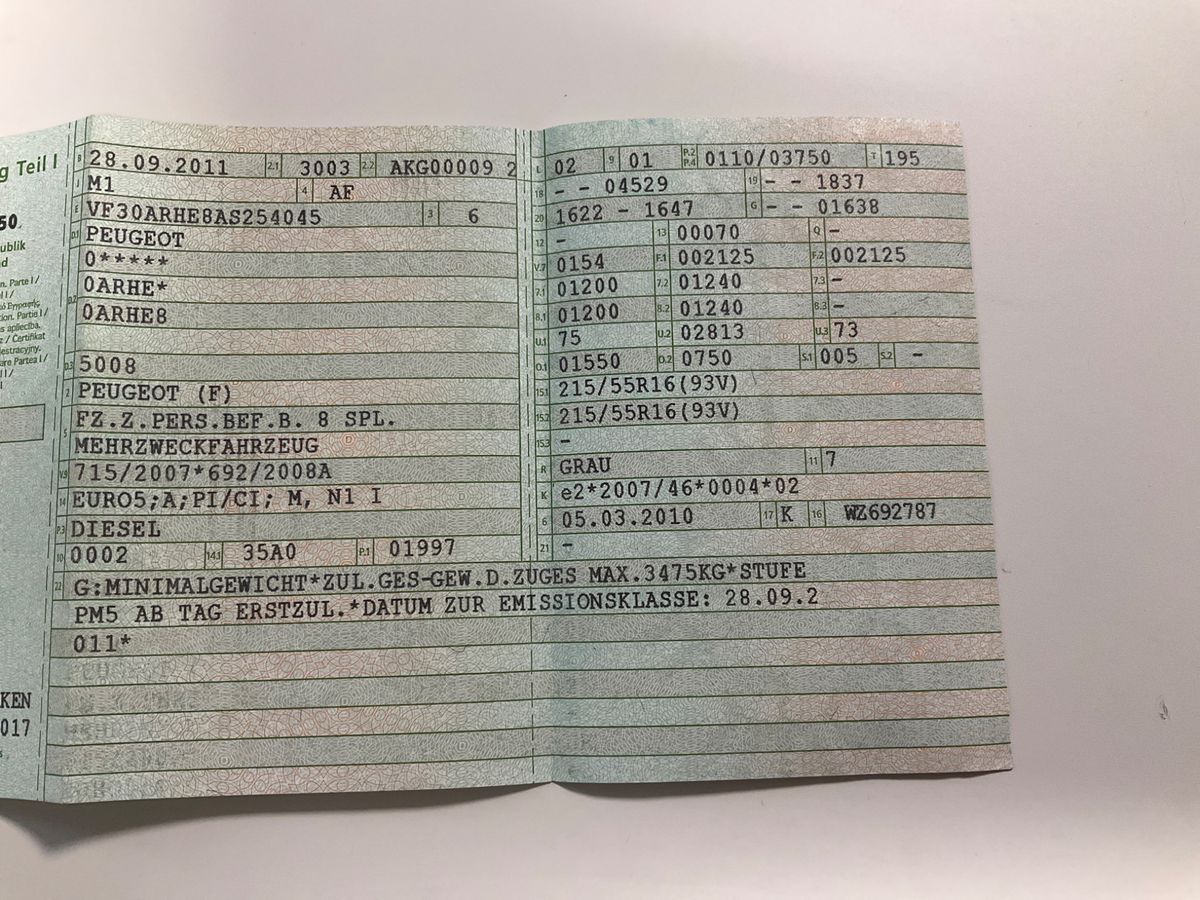 g Teil I
50
ublik
d
n. Parte I /
el I /
ό Εγγραφής
tion. Partie I /
s apliecība.
z / Certifikat
destracyjny.
are Partea I /
l I /
I
KEN
017
s
B 28.09.2011 2.1 3003 2.2 AKG00009 2
J M1 4 AF
E VF30ARHE8AS254045 3 6
D.1 PEUGEOT
0*****
D.2 0ARHE*
0ARHE8
D.3 5008
2 PEUGEOT (F)
FZ.Z.PERS.BEF.B. 8 SPL.
5 MEHRZWECKFAHRZEUG
V.9 715/2007*692/2008A
14 EURO5;A;PI/CI; M, N1 I
P.3 DIESEL
10 0002 14.1 35A0 P.1 01997
L 02 9 01 P.2 P.4 0110/03750 T 195
18 - - 04529 19 - - 1837
20 1622 - 1647 G - - 01638
12 - 13 00070 Q -
V.7 0154 F.1 002125 F.2 002125
7.1 01200 7.2 01240 7.3 -
8.1 01200 8.2 01240 8.3 -
U.1 75 U.2 02813 U.3 73
O.1 01550 O.2 0750 S.1 005 S.2 -
15.1 215/55R16(93V)
15.2 215/55R16(93V)
15.3 -
R GRAU 11 7
K e2*2007/46*0004*02
6 05.03.2010 17 K 16 WZ692787
21 -
22 G:MINIMALGEWICHT*ZUL.GES-GEW.D.ZUGES MAX.3475KG*STUFE
PM5 AB TAG ERSTZUL.*DATUM ZUR EMISSIONSKLASSE: 28.09.2
011*